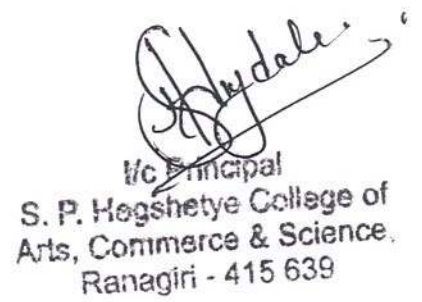 I/c Principal
S. P. Hegshetye College of
Arts, Commerce & Science.
Ranagiri - 415 639